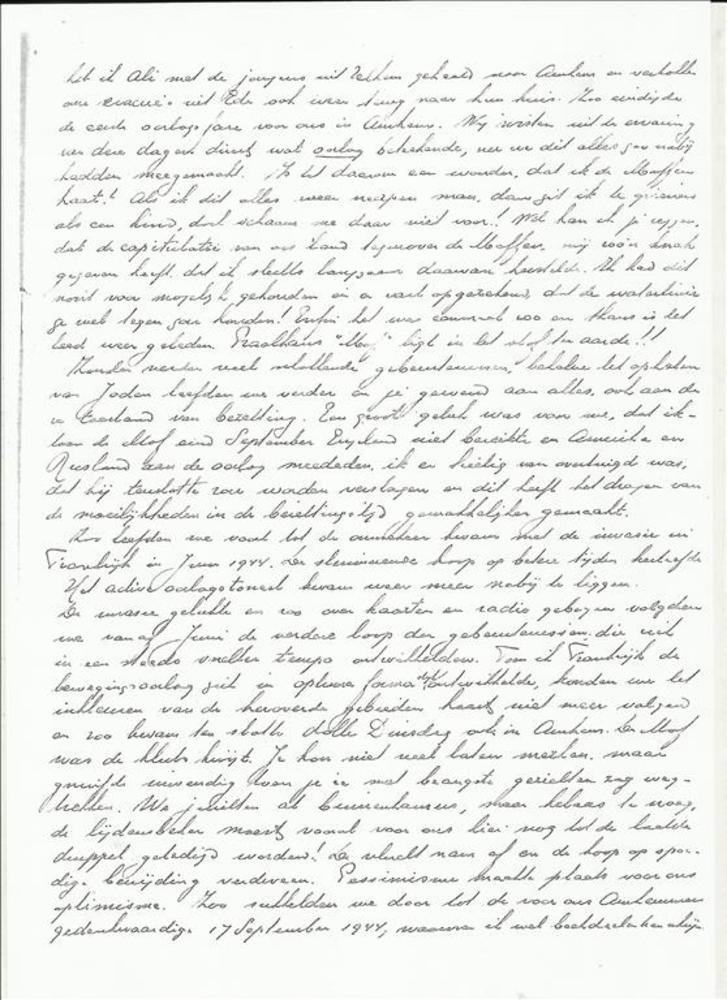 heb ik Ali met de jongens uit gehaald naar Arnhem en
evacué's uit Ede ook weer terug naar hun huis. Zoo eindigde
de eerste oorlogsfase voor ons in Arnhem. Wij wisten uit de ervaring
van deze dagen direct wat oorlog beteekende, nu we dit alles zoo nabij
hadden meegemaakt. Is het daarom een wonder, dat ik de Moffen
haat? Als ik dit alles weer neerpen man, dan zit ik te grienen
als een kind, doch schaam me daar niet voor! Wel kan ik je zeggen,
dat de capitulatie van ons land tegenover de Moffen, mij zoo'n knak
gegeven heeft, dat ik slechts langzaam daarvan herstelde. Ik had dit
nooit voor mogelijk gehouden en er vast op gerekend, dat de waterlinie
ze wel tegen zou houden! Enfin het was eenmaal zoo en thans is het
leed weer geleden. Praalhans "Mof" ligt in het stof ter aarde!!
Zonder verder veel schokkende gebeurtenissen, behalve het ophalen
van Joden leefden we verder en je gewend aan alles, ook aan de
toestand van bezetting. Een groot geluk was voor me, dat ik -
toen de Mof eind September Engeland niet bereikte en Amerika en
Rusland aan de oorlog meededen, ik er heilig van overtuigd was,
dat hij tenslotte zou worden verslagen en dit heeft het dragen van
de moeilijkheden in de bezettingstijd gemakkelijker gemaakt.
Zoo leefden we voort tot de ommekeer kwam met de invasie in
Frankrijk in Juni 1944. De sluimerende hoop op betere tijden herleefde
Het actieve oorlogstoneel kwam weer meer nabij te liggen.
De invasie gelukte en zoo over kaarten en radio gebogen volgden
we vanaf Juni de verdere loop der gebeurtenissen, die zich
in een steeds sneller tempo ontwikkelden. Toen in Frankrijk de
bewegingsoorlog zich in optima forma ontwikkelde, konden we het
inkleuren van de heroverde gebieden haast niet meer volgen
en zoo kwam ten slotte dolle Dinsdag ook in Arnhem. De Mof
was de kluts kwijt. Je kon niet veel laten merken, maar
gnuifde inwendig toen je ze met beangste gezichten zag weg-
trekken. We juichten al binnenkamers, maar helaas te vroeg,
de lijdensbeker moest vooral voor ons hier nog tot de laatste
druppel geledigd worden! De vlucht nam af en de hoop op spoe-
dige bevrijding verdween. Pessimisme maakte plaats voor ons
optimisme. Zoo sukkelden we door tot de voor ons Arnhemmers
gedenkwaardige 17 September 1944, waarvan ik wel